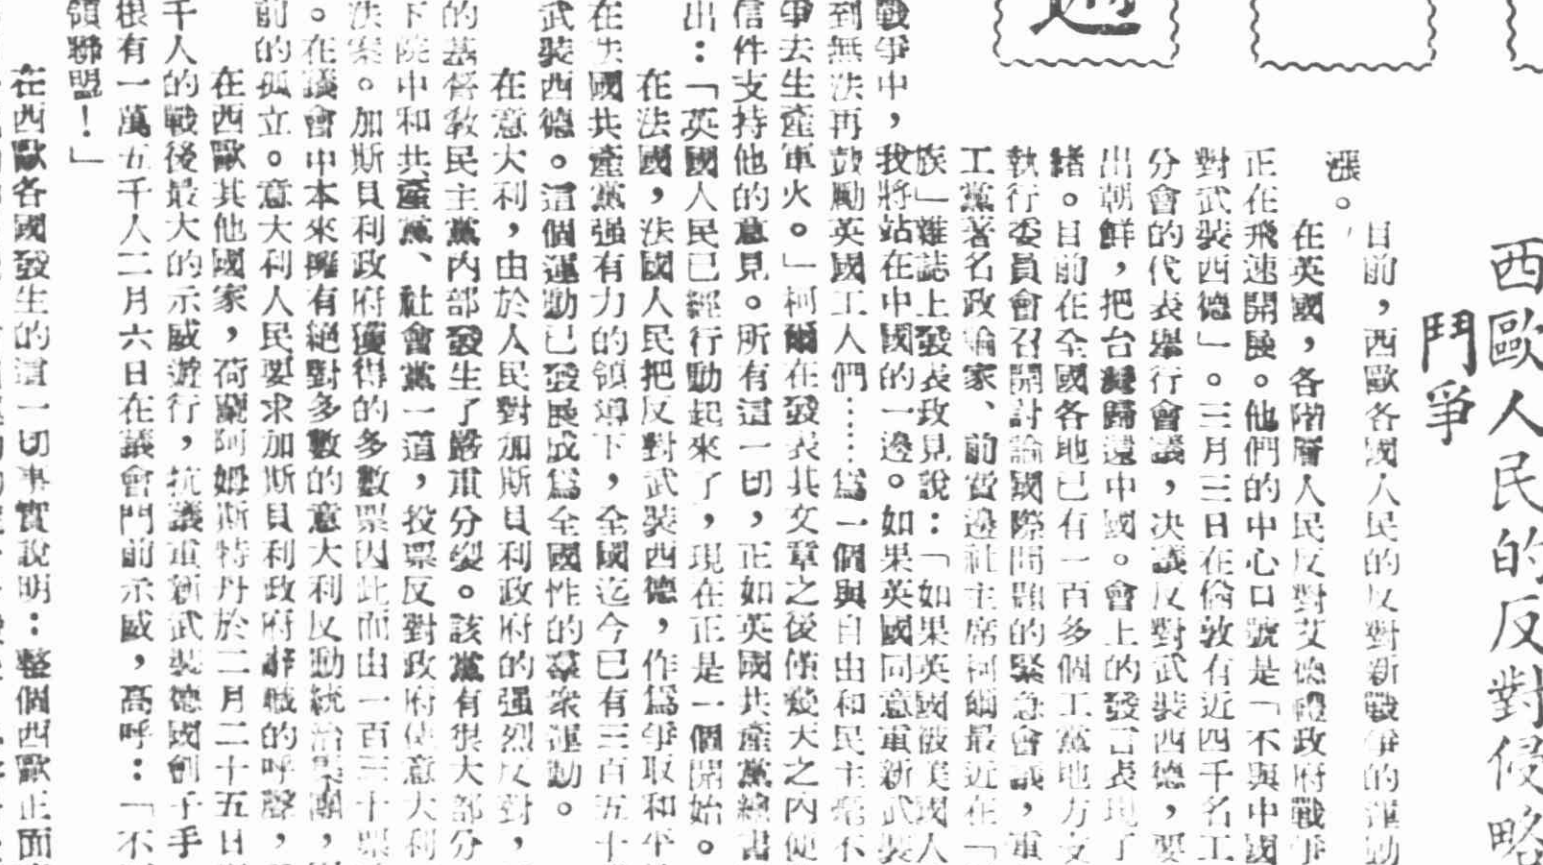 週
西歐人民的反對侵略
鬥爭
目前，西歐各國人民的反對新戰爭的運動
漲。
在英國，各階層人民反對艾德禮政府戰爭
正在飛速開展。他們的中心口號是「不與中國
對武裝西德」。三月三日在倫敦有近四千名工
分會的代表舉行會議，决議反對武裝西德，要
出朝鮮，把台灣歸還中國。會上的發言表現了
緒。目前在全國各地已有一百多個工黨地方支
執行委員會召開討論國際問題的緊急會議，重
工黨著名政論家、前費邊社主席柯爾最近在「
族」雜誌上發表政見說：「如果英國被美國人
戰爭中，我將站在中國的一邊。如果英國同意重新武裝
到無法再鼓勵英國工人們……爲一個與自由和民主毫不
爭去生產軍火。」柯爾在發表其文章之後傾幾天之内便
信件支持他的意見。所有這一切，正如英國共產黨總書
出：「英國人民已經行動起來了，現在正是一個開始。
在法國，法國人民把反對武裝西德，作爲爭取和平
在法國共產黨强有力的領導下，全國迄今已有三百五十
武裝西德。這個運動已發展成爲全國性的羣衆運動。
在意大利，由於人民對加斯貝利政府的强烈反對，
的基督教民主黨内部發生了嚴重分裂。該黨有很大部分
下院中和共產黨、社會黨一道，投票反對政府使意大利
決案。加斯貝利政府獲得的多數票因此而由一百三十票
。在議會中本來擁有絕對多數的意大利反動統治集團，
前的孤立。意大利人民要求加斯貝利政府辭職的呼聲，
在西歐其他國家，荷蘭阿姆斯特丹於二月二十五日
千人的戰後最大的示威遊行，抗議重新武裝德國劊子手
根有一萬五千人二月六日在議會門前示威，高呼：「不
領聯盟！」
在西歐各國發生的這一切事實說明：整個西歐正面